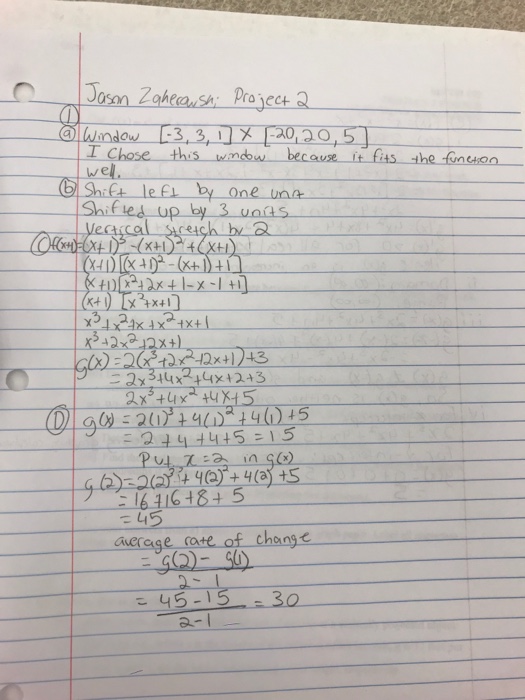 Jason Project 2
①
ⓐ Window [-3, 3, 1] X [-20, 20, 5]
I Chose this window because it fits the function
well.
ⓑ Shift left by one unit
Shifted up by 3 units
Vertical stretch by 2
Ⓒ f(x+1)=(x+1)³-(x+1)²+(x+1)
(x+1)[(x+1)²-(x+1)+1]
(x+1)[x²+2x+1-x-1+1]
(x+1)[x²+x+1]
x³+x²+x+x²+x+1
x³+2x²+2x+1)
g(x)=2(x³+2x²+2x+1)+3
= 2x³+4x²+4x+2+3
2x³+4x²+4x+5
Ⓓ g(x) = 2(1)³+4(1)²+4(1)+5
= 2+4+4+5 = 15
Put x=2 in g(x)
g(2)=2(2)³+4(2)²+4(2)+5
= 16+16+8+5
= 45
average rate of change
= g(2) - g(1)
2-1
= 45-15 = 30
2-1